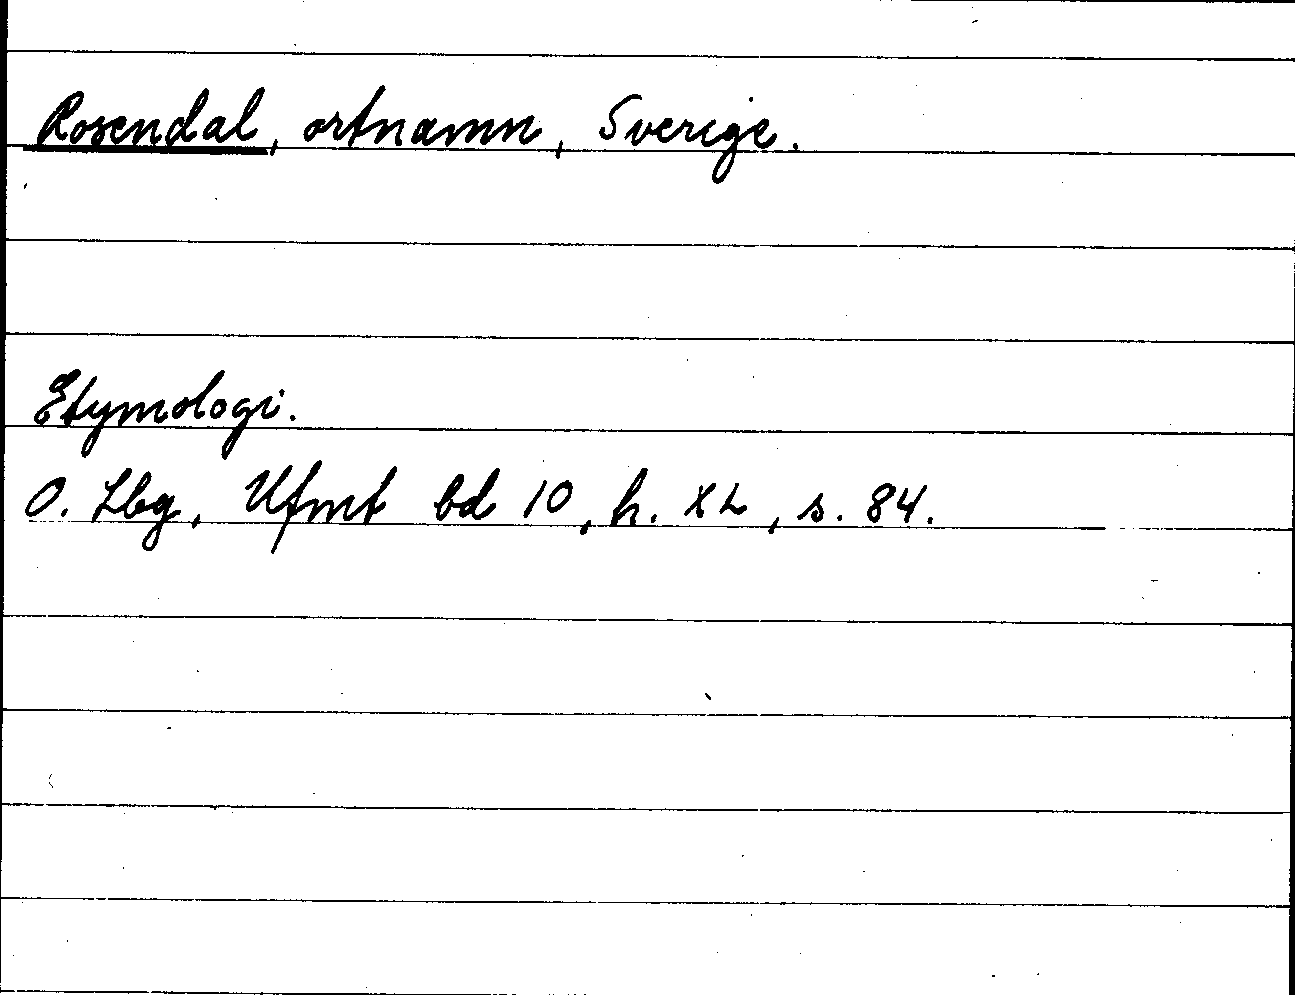 Rosendal, ortnamn, Sverige.
Etymologi.
O. Lbg, Ufmt bd 10, h. XL, s. 84.